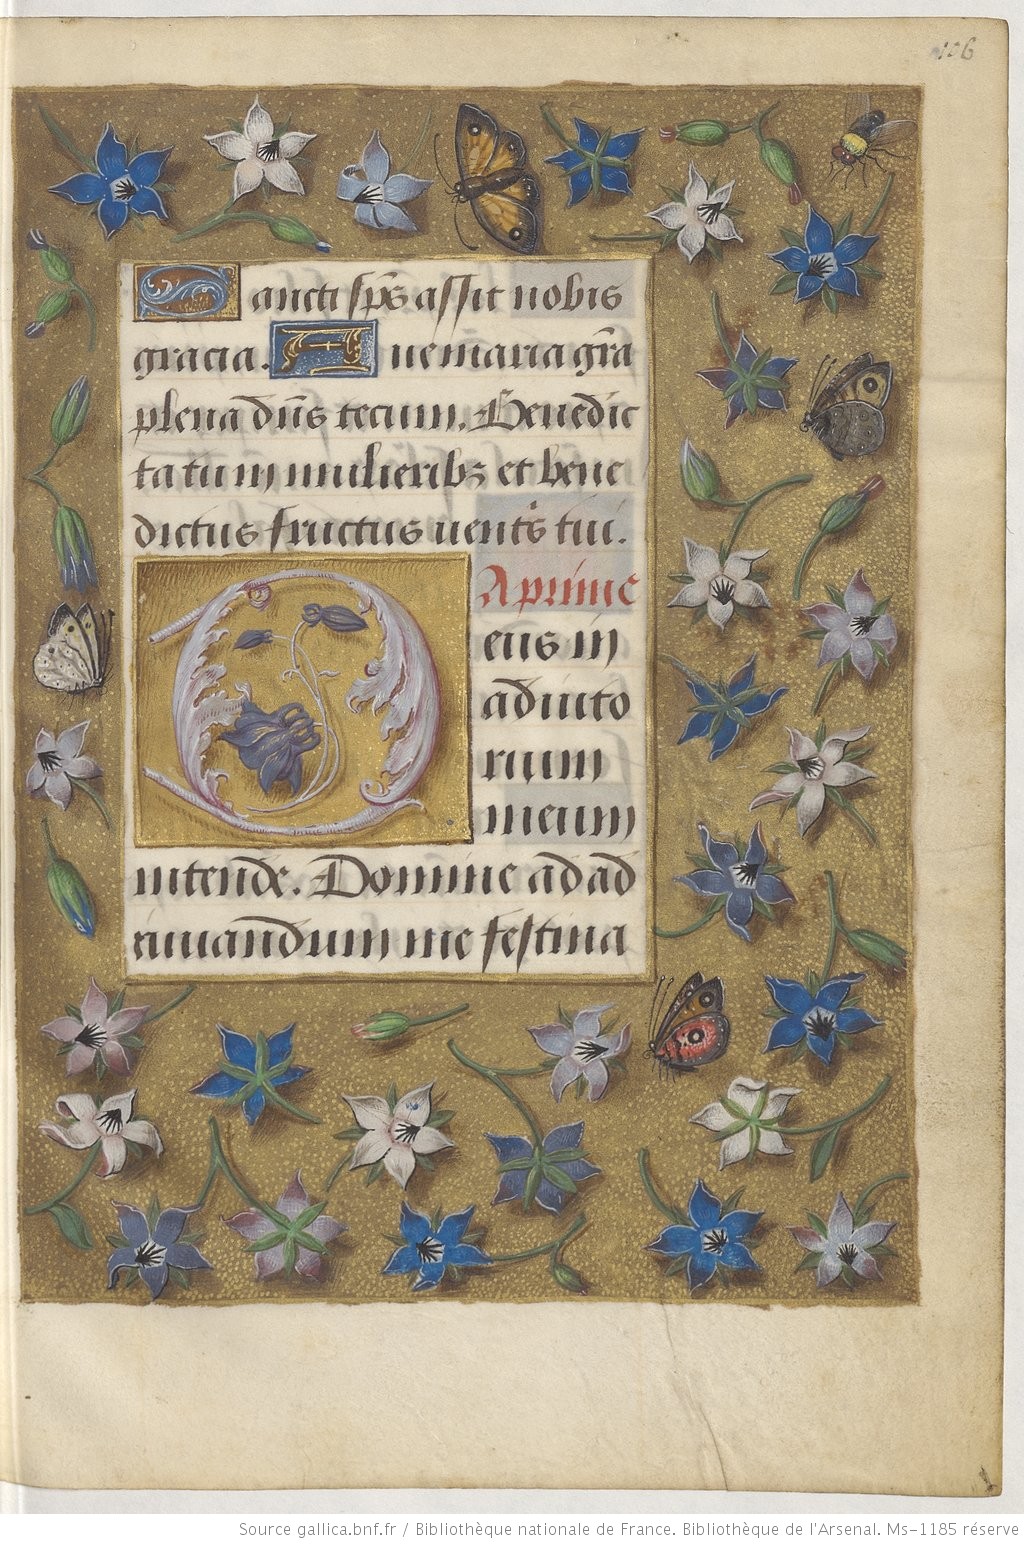 106
Sancti sp̃s assit nobis
gracia. Aue m̃aria gr̃a
plena dñs tecum. Benedic
ta tu in mulieribꝫ et bene
dictus fructus uent̃s tui.
A prime
Deus in
adiuto
rium
meum
intende. Domine ad ad
iuuandum me festina
Source gallica.bnf.fr / Bibliothèque nationale de France. Bibliothèque de l'Arsenal. Ms-1185 réserve